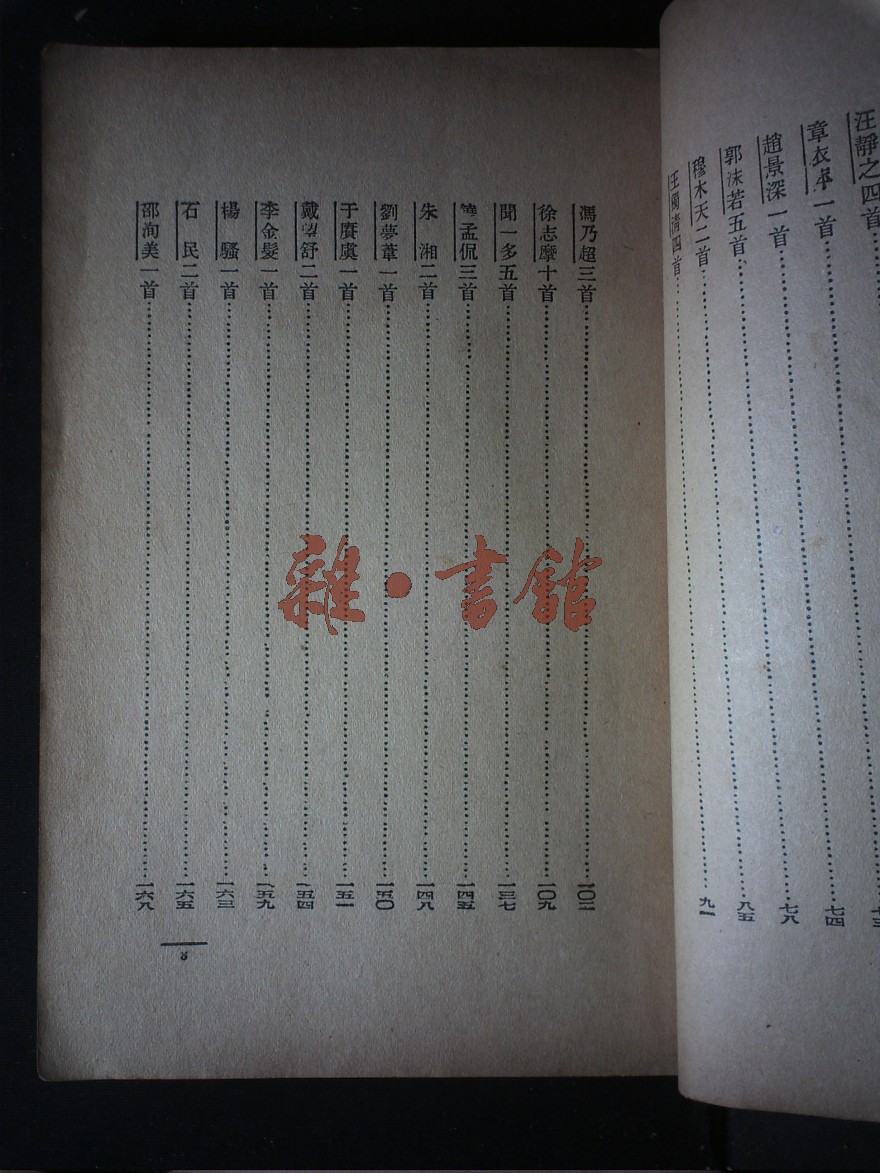 汪靜之四首
章衣萍一首……七四
趙景深一首……七八
郭沫若五首……八五
穆木天二首……九一
王獨清四首
馮乃超三首……一〇二
徐志摩十首……一〇九
聞一多五首……一三七
饒孟侃三首……一四五
朱湘二首……一四八
劉夢葦一首……一五〇
于賡虞一首……一五一
戴望舒二首……一五四
李金髮一首……一五九
楊騷一首……一六三
石民二首……一六五
邵洵美一首……一六八
雜·書館